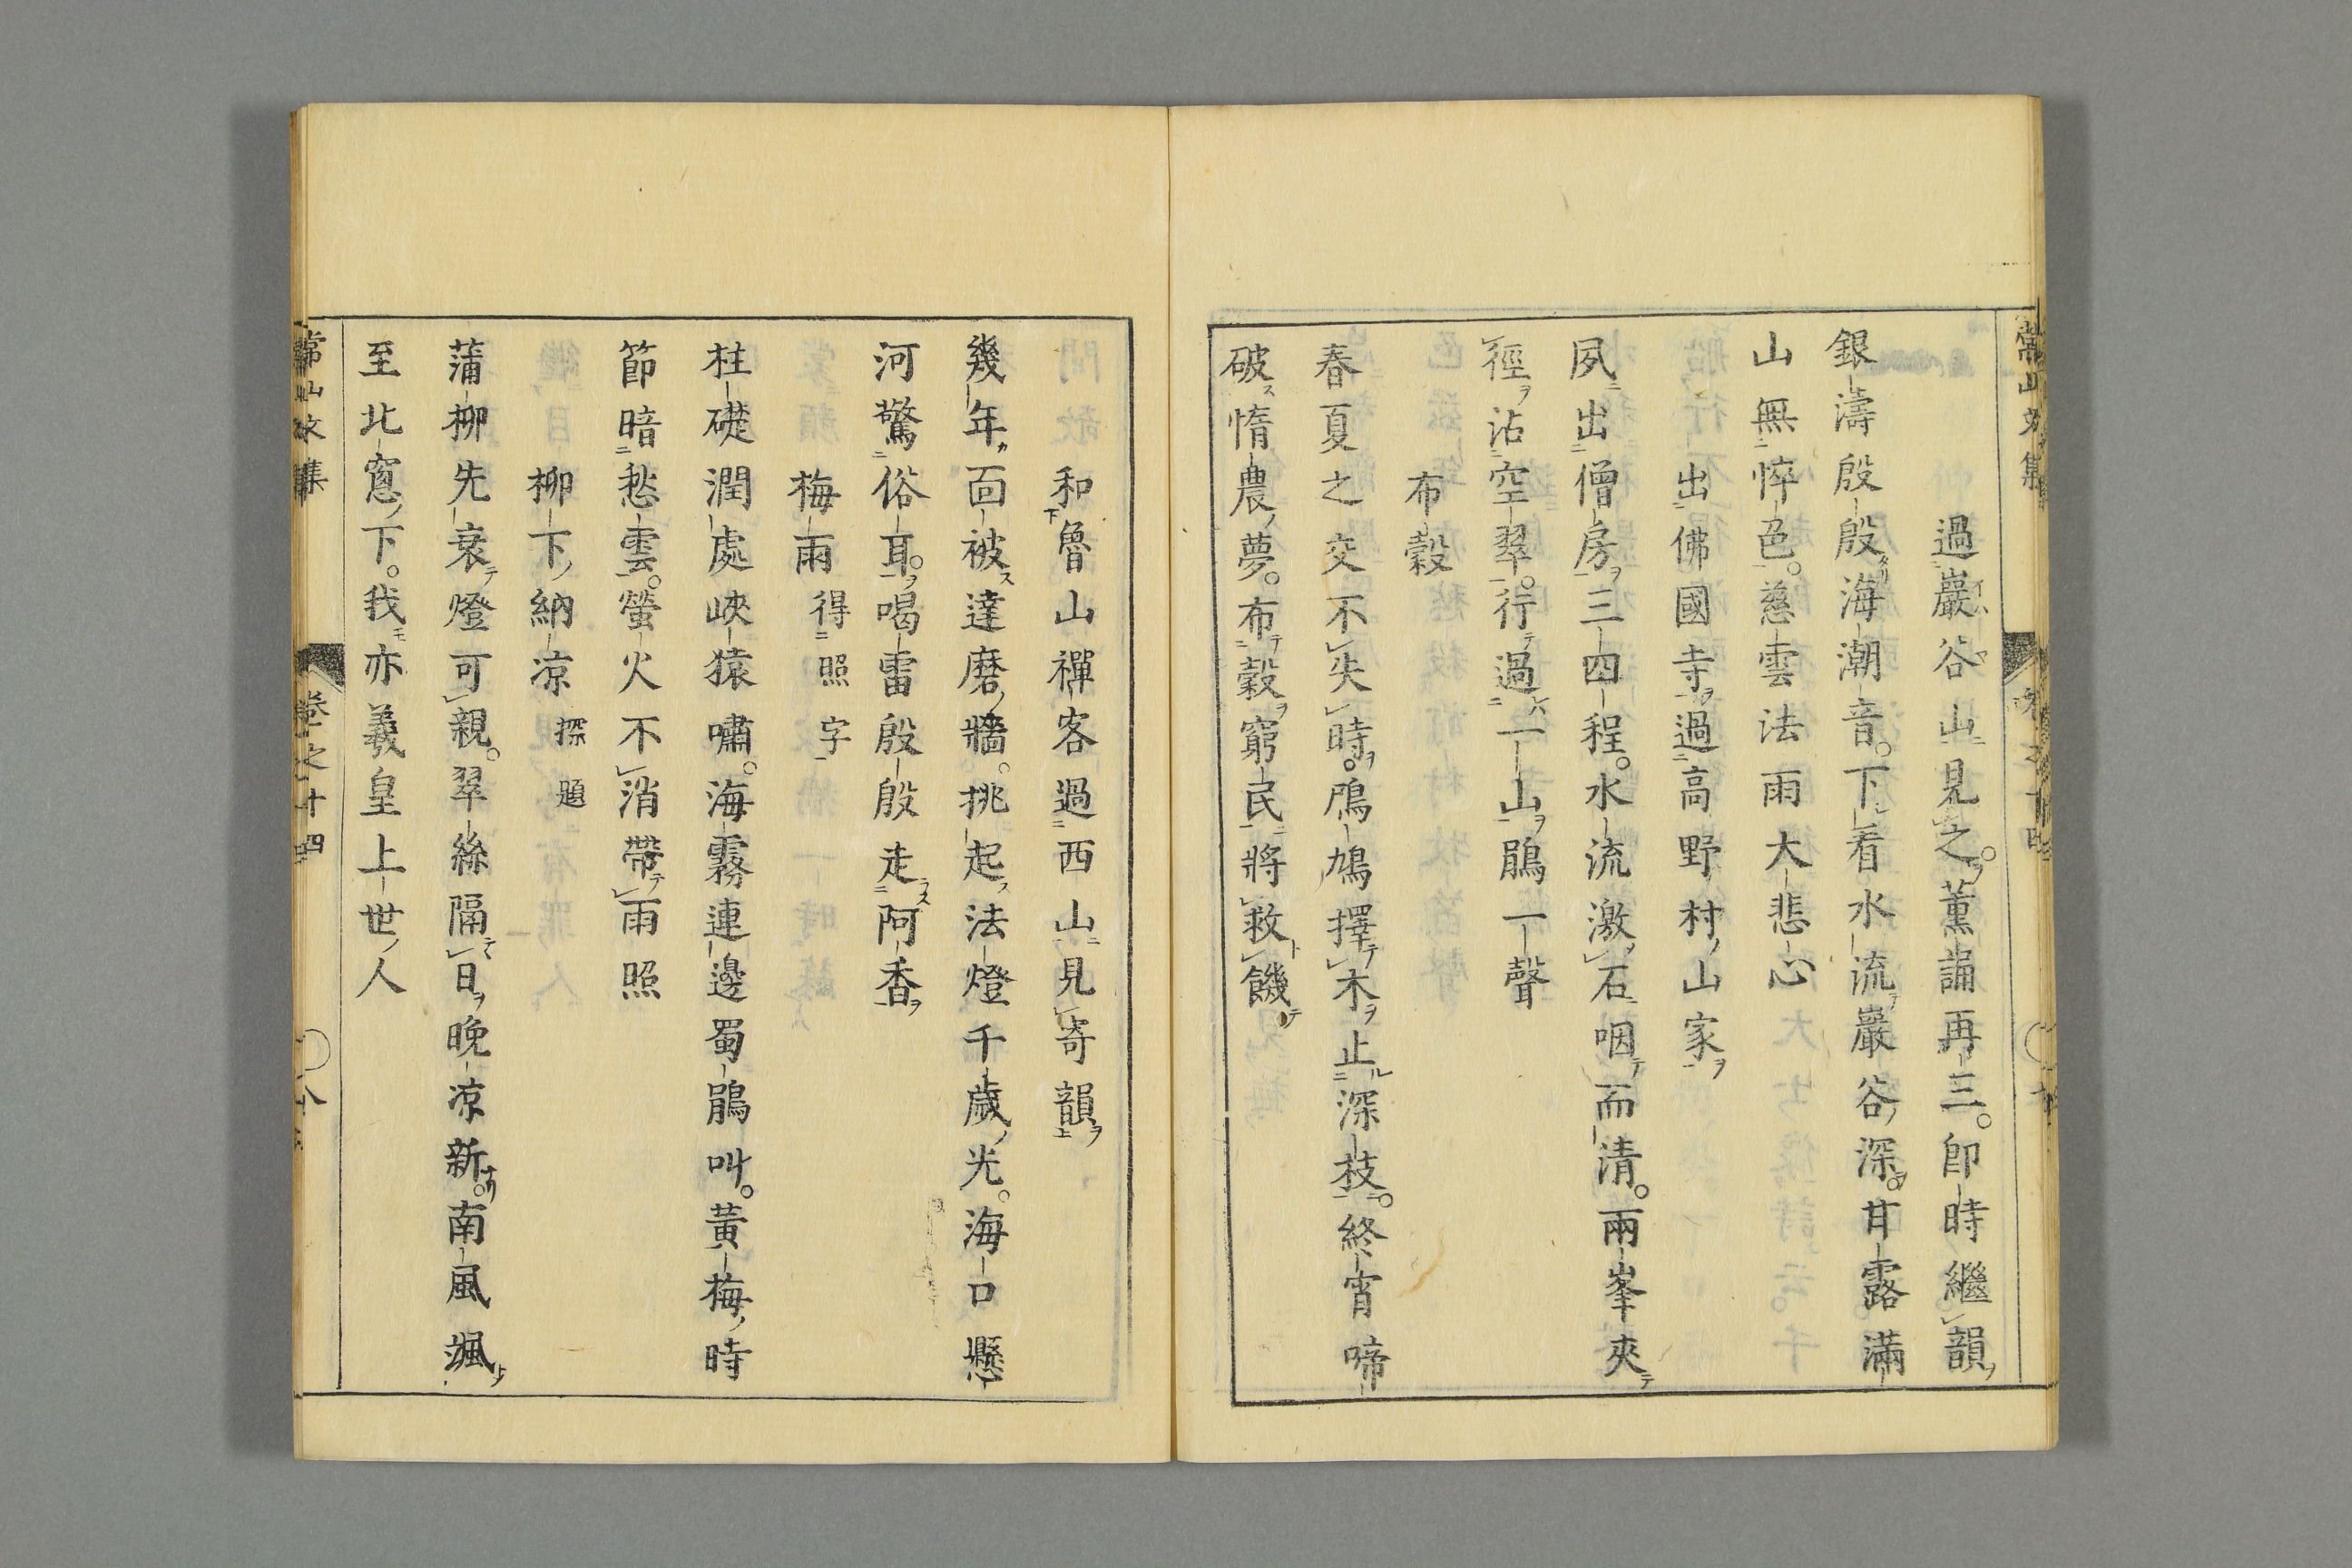 常山文集
過巖谷山見之薫誦再三。即時繼韻
銀濤殷殷海潮音。下看水流巖谷深。甘露滿
山無悴色。慈雲法雨大悲心
出佛國寺過高野村山家
夙出僧房三四程。水流激石咽而清。兩峯夾
徑沾空翠。行過一山鵑一聲
布穀
春夏之交不失時。鳲鳩擇木止深枝。終宵啼
破惰農夢。布穀窮民將救饑
和魯山禪客過西山見寄韻
幾年面被達磨牆。挑起法燈千歲光。海口懸
河驚俗耳。喝雷殷殷走阿香
梅雨 得照字
柱礎潤處峽猿嘯。海霧連邊蜀鵑叫。黃梅時
節暗愁雲。螢火不消帶雨照
柳下納凉 探題
蒲柳先衰燈可親。翠絲隔日晚凉新。南風颯
至北窓下。我亦羲皇上世人
常山文集 卷之十四 八